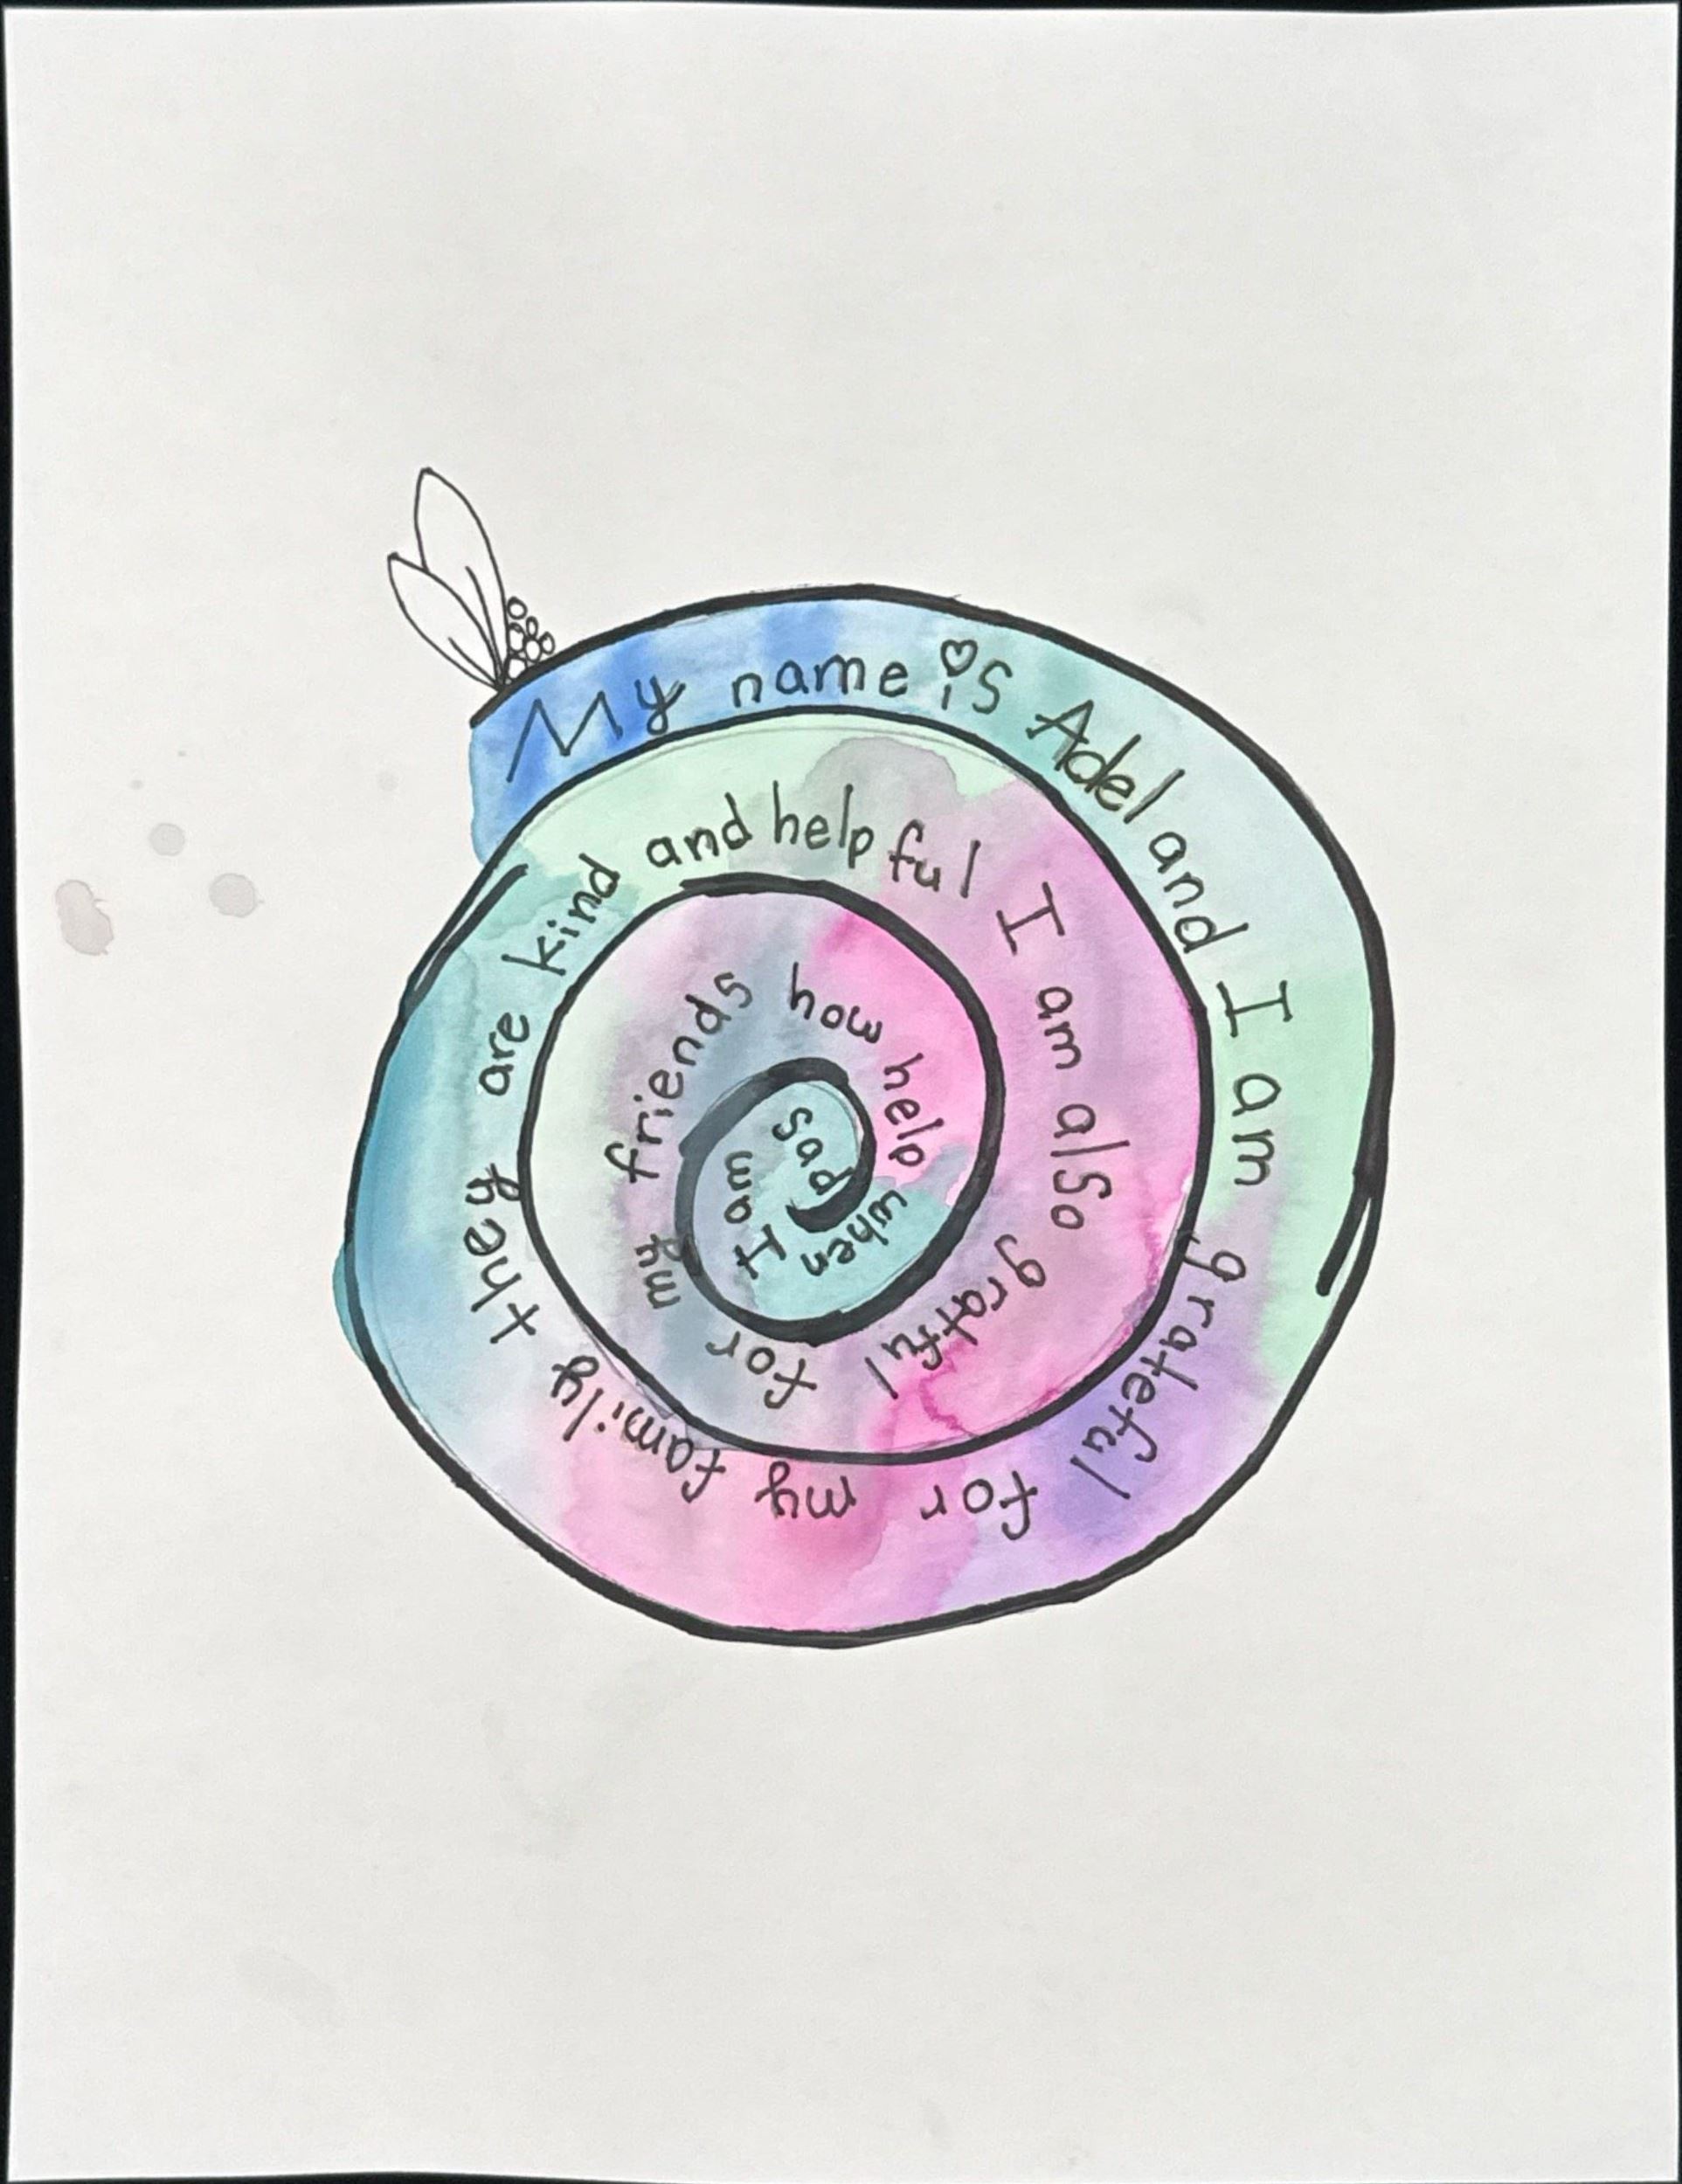 My name is Adel and I am grateful for my family they are kind and helpful I am also gratful for my friends how help when I am sad